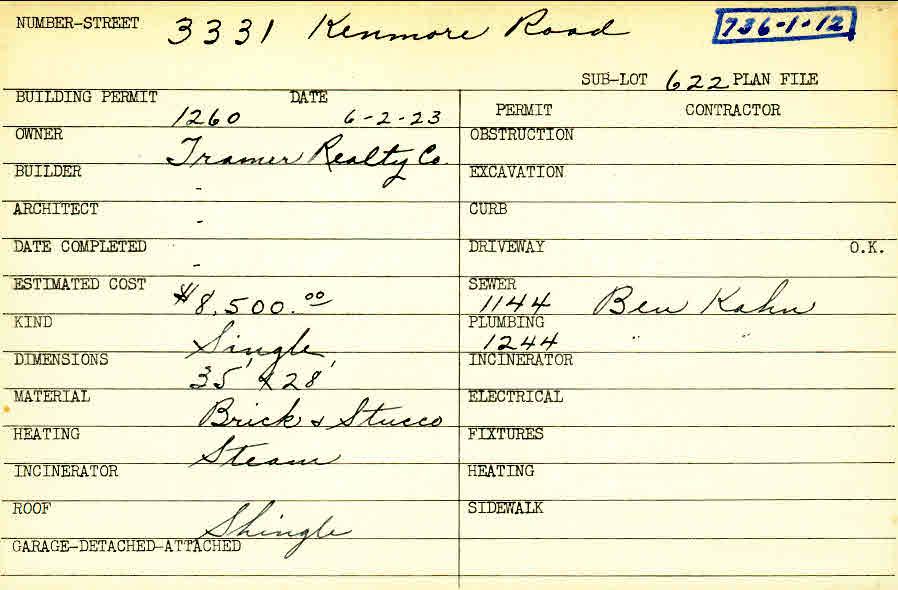 NUMBER-STREET 3331 Kenmore Road 736-1-12
SUB-LOT 622 PLAN FILE
BUILDING PERMIT DATE
1260 6-2-23
PERMIT CONTRACTOR
OWNER Tramer Realty Co.
OBSTRUCTION
BUILDER -
EXCAVATION
ARCHITECT -
CURB
DATE COMPLETED -
DRIVEWAY O.K.
ESTIMATED COST $8,500.00
SEWER
1144 Ben Kahn
KIND Single
PLUMBING
1244 " "
DIMENSIONS 35' x 28'
INCINERATOR
MATERIAL Brick & Stucco
ELECTRICAL
HEATING Steam
FIXTURES
INCINERATOR
HEATING
ROOF Shingle
SIDEWALK
GARAGE-DETACHED-ATTACHED